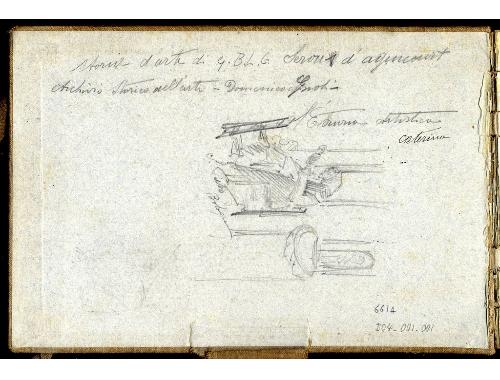 Storia d'arte di G. B. L. G. Seroux d'agincourt
Archivio Storico dell'arte - Domenico Gnoli
L'Etruria Artistica
caterina
661A
204-001-001